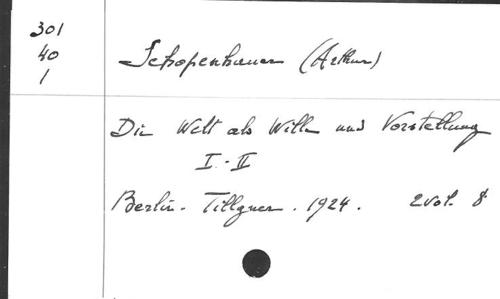 301
40
1
Schopenhauer (Arthur)
Die Welt als Wille und Vorstellung
I-II
Berlin. Tillgner. 1924. 2 vol. 8